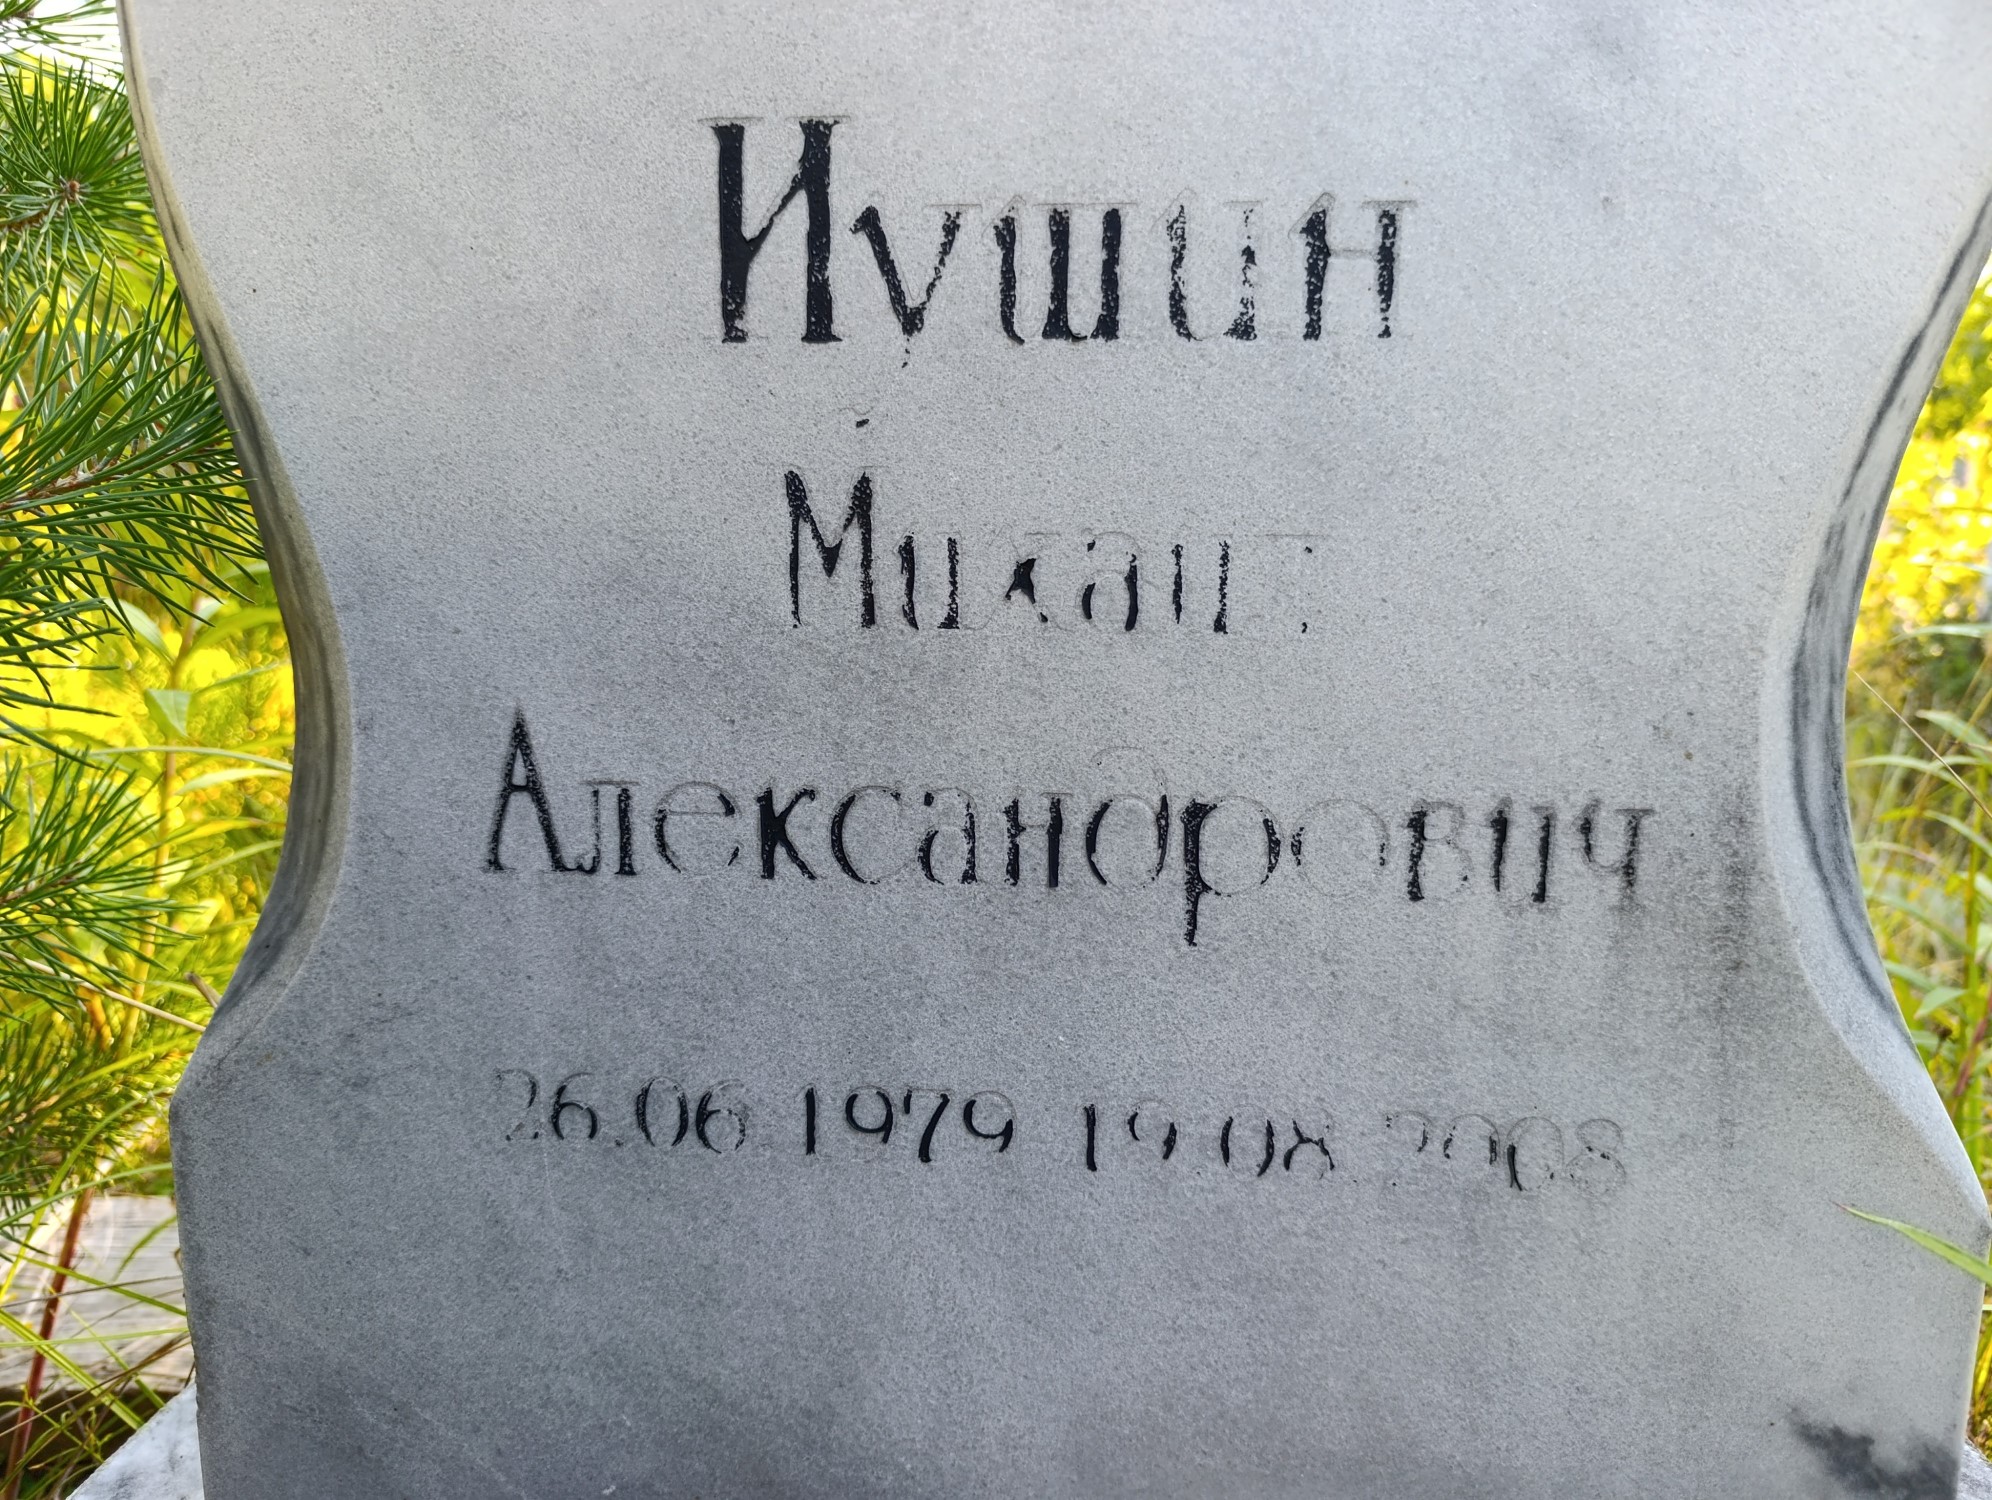 Иушин
Михаил
Александрович
26.06.1979 19.08.2008